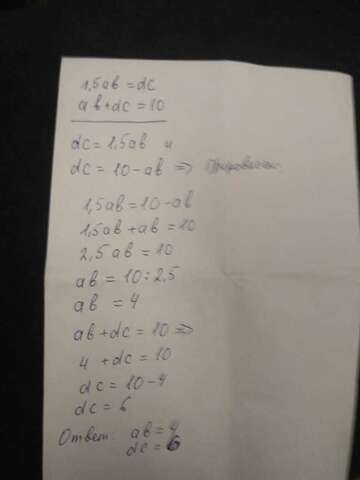 1,5ab = dc
ab + dc = 10
dc = 1,5ab и
dc = 10 - ab ⇒ Приравняем
1,5ab = 10 - ab
1,5ab + ab = 10
2,5ab = 10
ab = 10 : 2,5
ab = 4
ab + dc = 10 ⇒
4 + dc = 10
dc = 10 - 4
dc = 6
Ответ: ab = 4
dc = 6